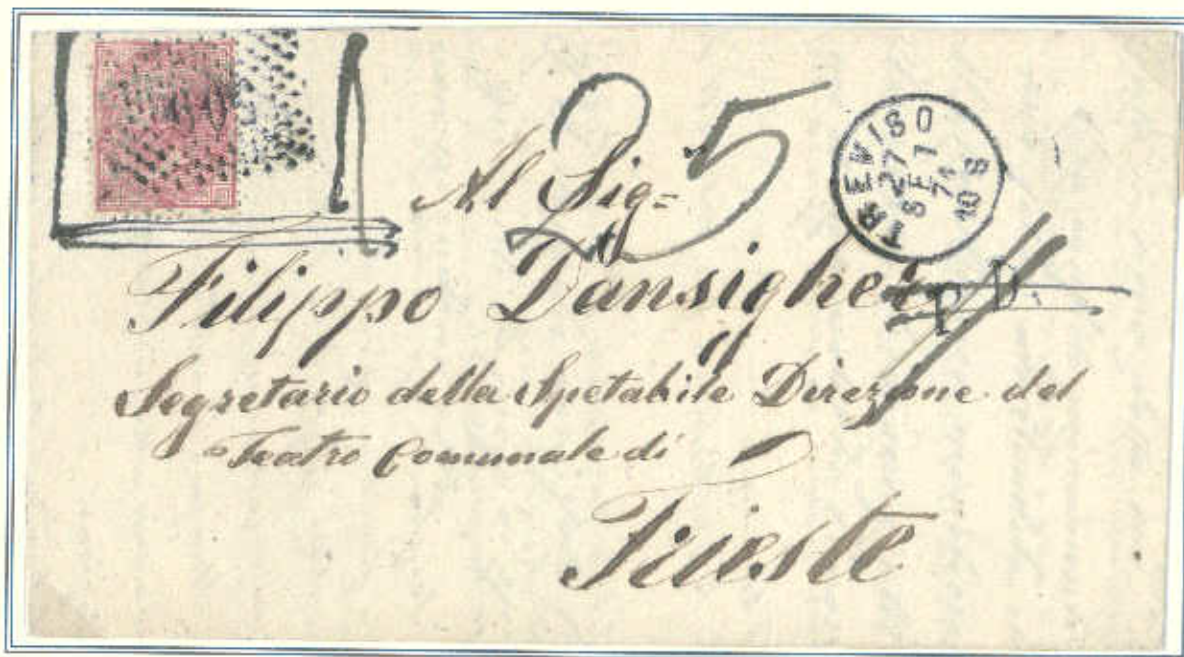 25
TREVISO
27
SET
71
10 S
Al Sig=
Filippo Dansigher
P.D.
Segretario della Spetabile Direzione del
Teatro Comunale di
Trieste